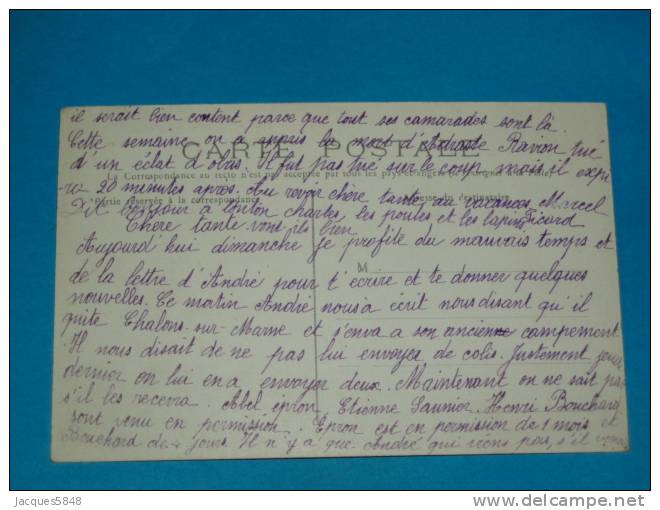 il serait bien content parce que tout ses camarades sont là.
Cette semaine on a appris la mort d'Adraste Ravion tué
CARTE POSTALE
d'un éclat d'obus. Il fut pas tué sur le coup mais il expi
La Correspondance au recto n'est pas acceptée par tous les pays étrangers
ra 20 minutes après. Au revoir chère tante au vacances Marcel
Partie réservée à la correspondance
Adresse du destinataire
Dit bonjour a tonton charles les poules et les lapins Picard
Chère tante vont ils bien
Aujourd'hui dimanche je profite du mauvais temps et
M
de la lettre d'André pour t'écrire et te donner quelques
nouvelles. Ce matin André nous a écrit nous disant qu'il
quite Chalons-sur-Marne et s'en va a son ancien campement
Il nous disait de ne pas lui envoyer de colis. Justement jeudi
dernier on lui en a envoyer deux. Maintenant on ne sait pas
s'il les recevra. Abel épron Etienne Saunier. Henri Bouchard
sont venu en permission. Epron est en permission de 1 mois et
Bouchard de 4 jours. Il n'y a que André qui viens pas, s'il
Jacques5848
delcampe.net